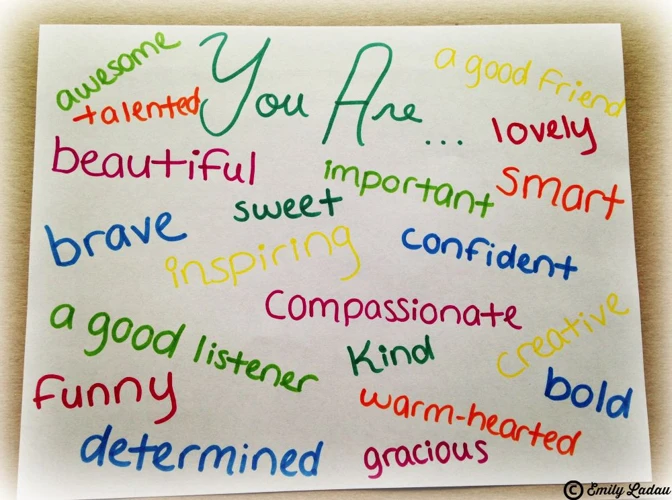 You Are...
awesome
a good friend
talented
lovely
beautiful
important
smart
sweet
brave
inspiring
confident
compassionate
creative
a good listener
kind
bold
funny
warm-hearted
determined
gracious
© Emily Ladau